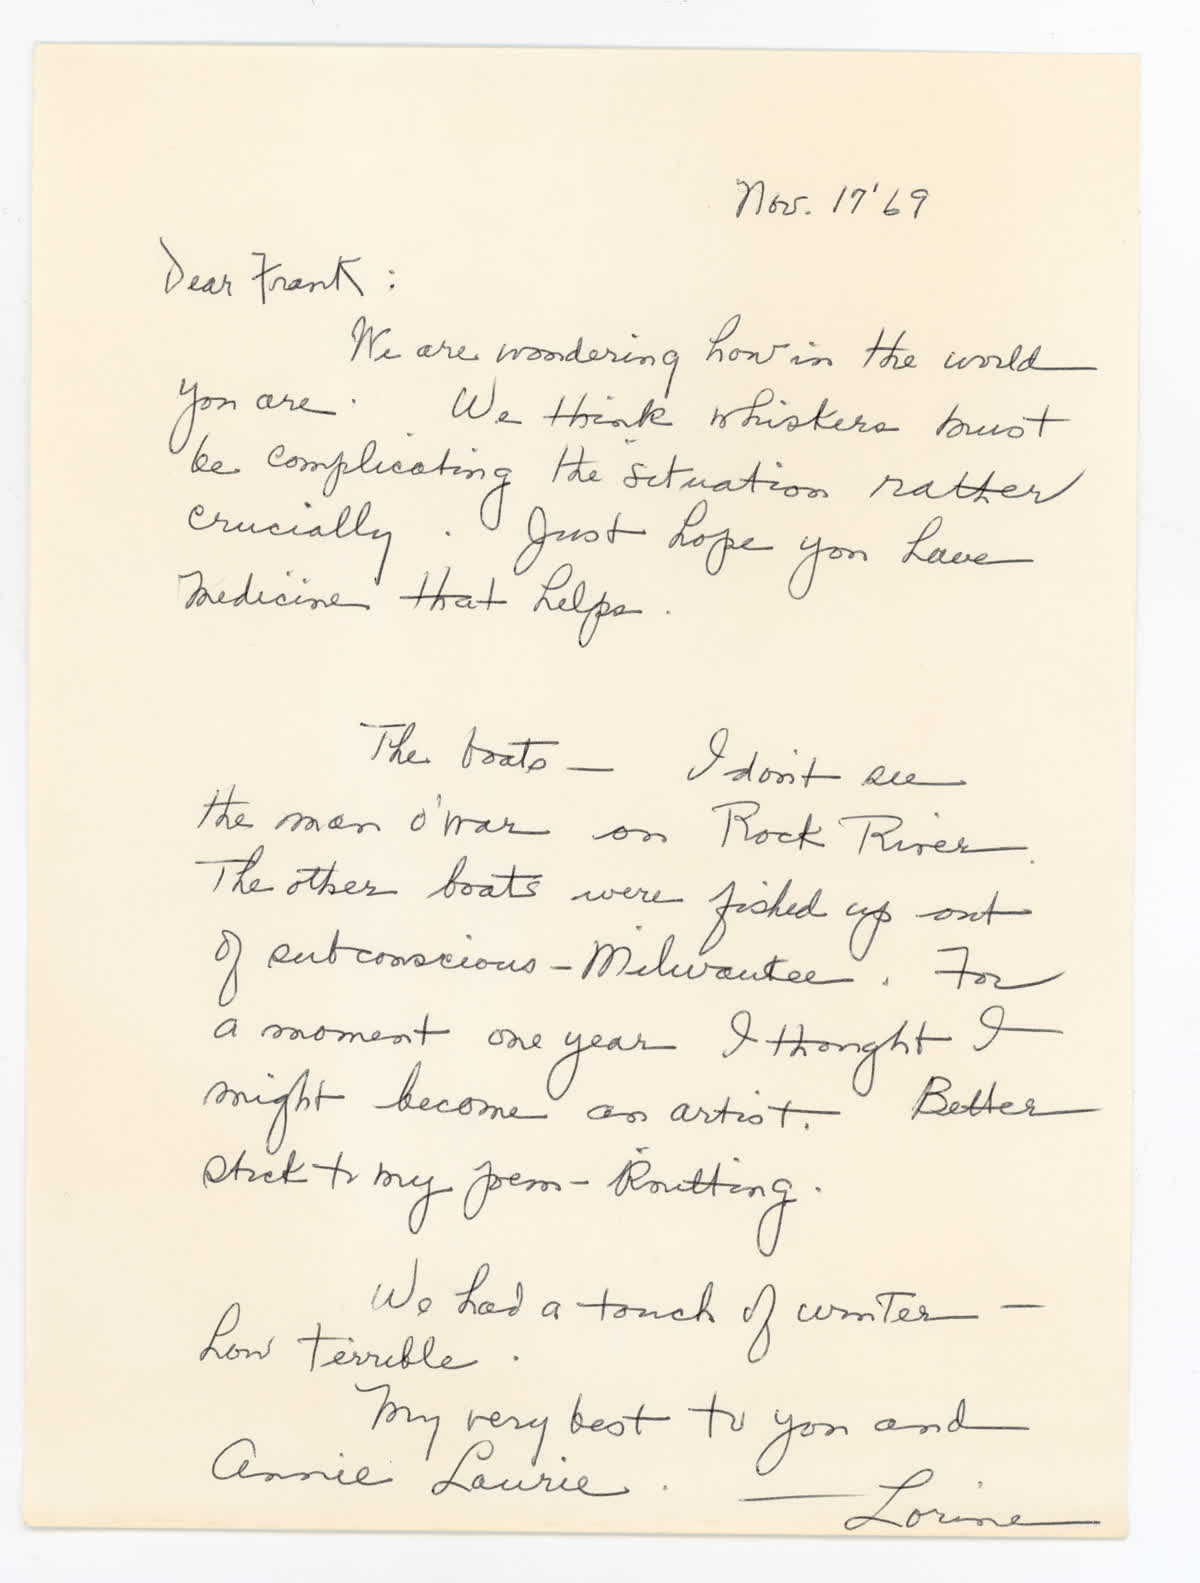 Nov. 17 '69
Dear Frank:
We are wondering how in the world
you are. We think whiskers must
be complicating the situation rather
crucially. Just hope you have
medicine that helps.
The boats — I don't see
the man o'war on Rock River.
The other boats were fished up out
of subconscious - Milwaukee. For
a moment one year I thought I
might become an artist. Better
stick to my poem - knitting.
We had a touch of winter —
how terrible.
My very best to you and
Annie Laurie.
— Lorine